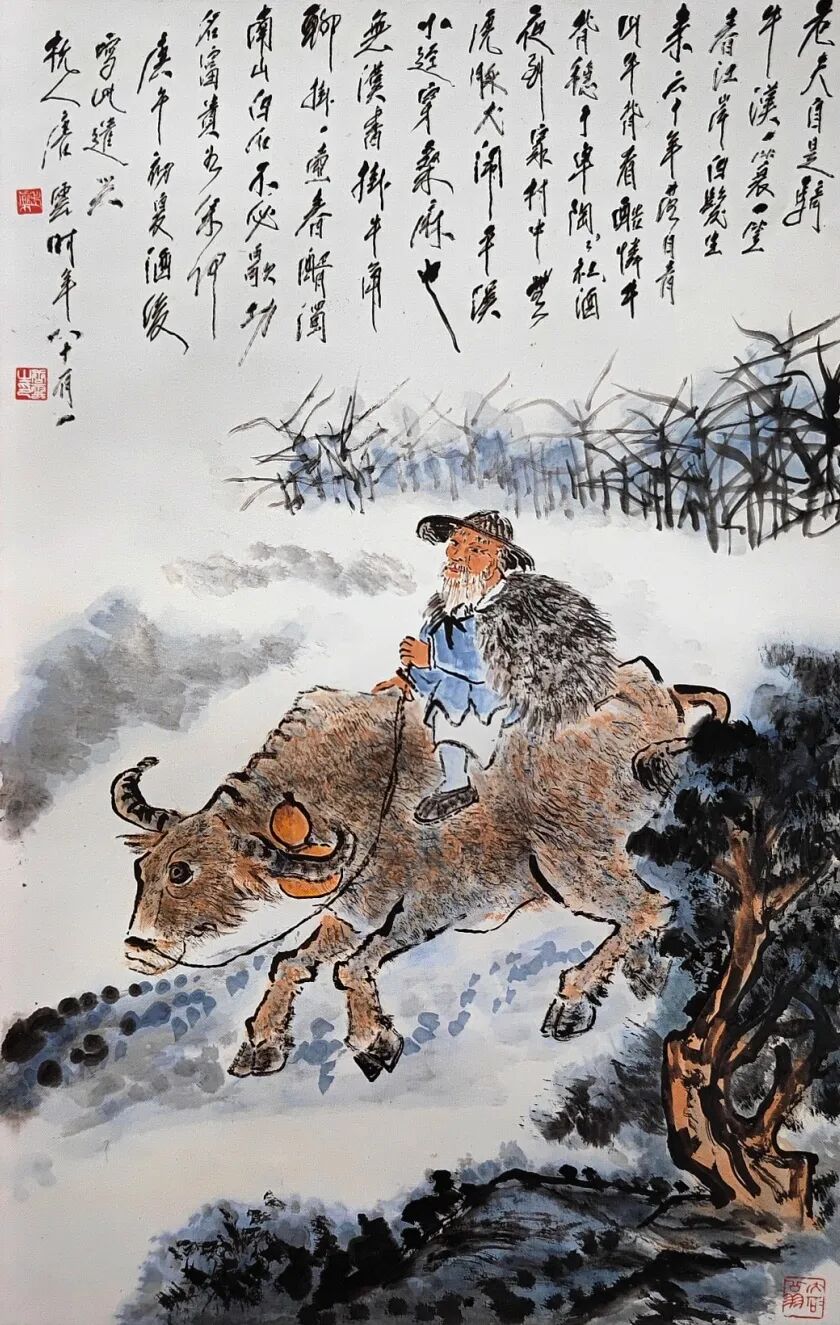 老夫自是騎
牛漢一蓑一笠
春江岸白髮生
来六十年落日青
山牛背看酷憐牛
背穩于車陶々社酒
夜到家村中無
虎豚犬鬧平溪
小逕穿桑麻也
無漢書掛牛角
聊掛一壺春醑濁
南山白石不必歌功
名富貴如余何
庚午初夏酒後
寫此遣興
杭人唐雲時年八十有一